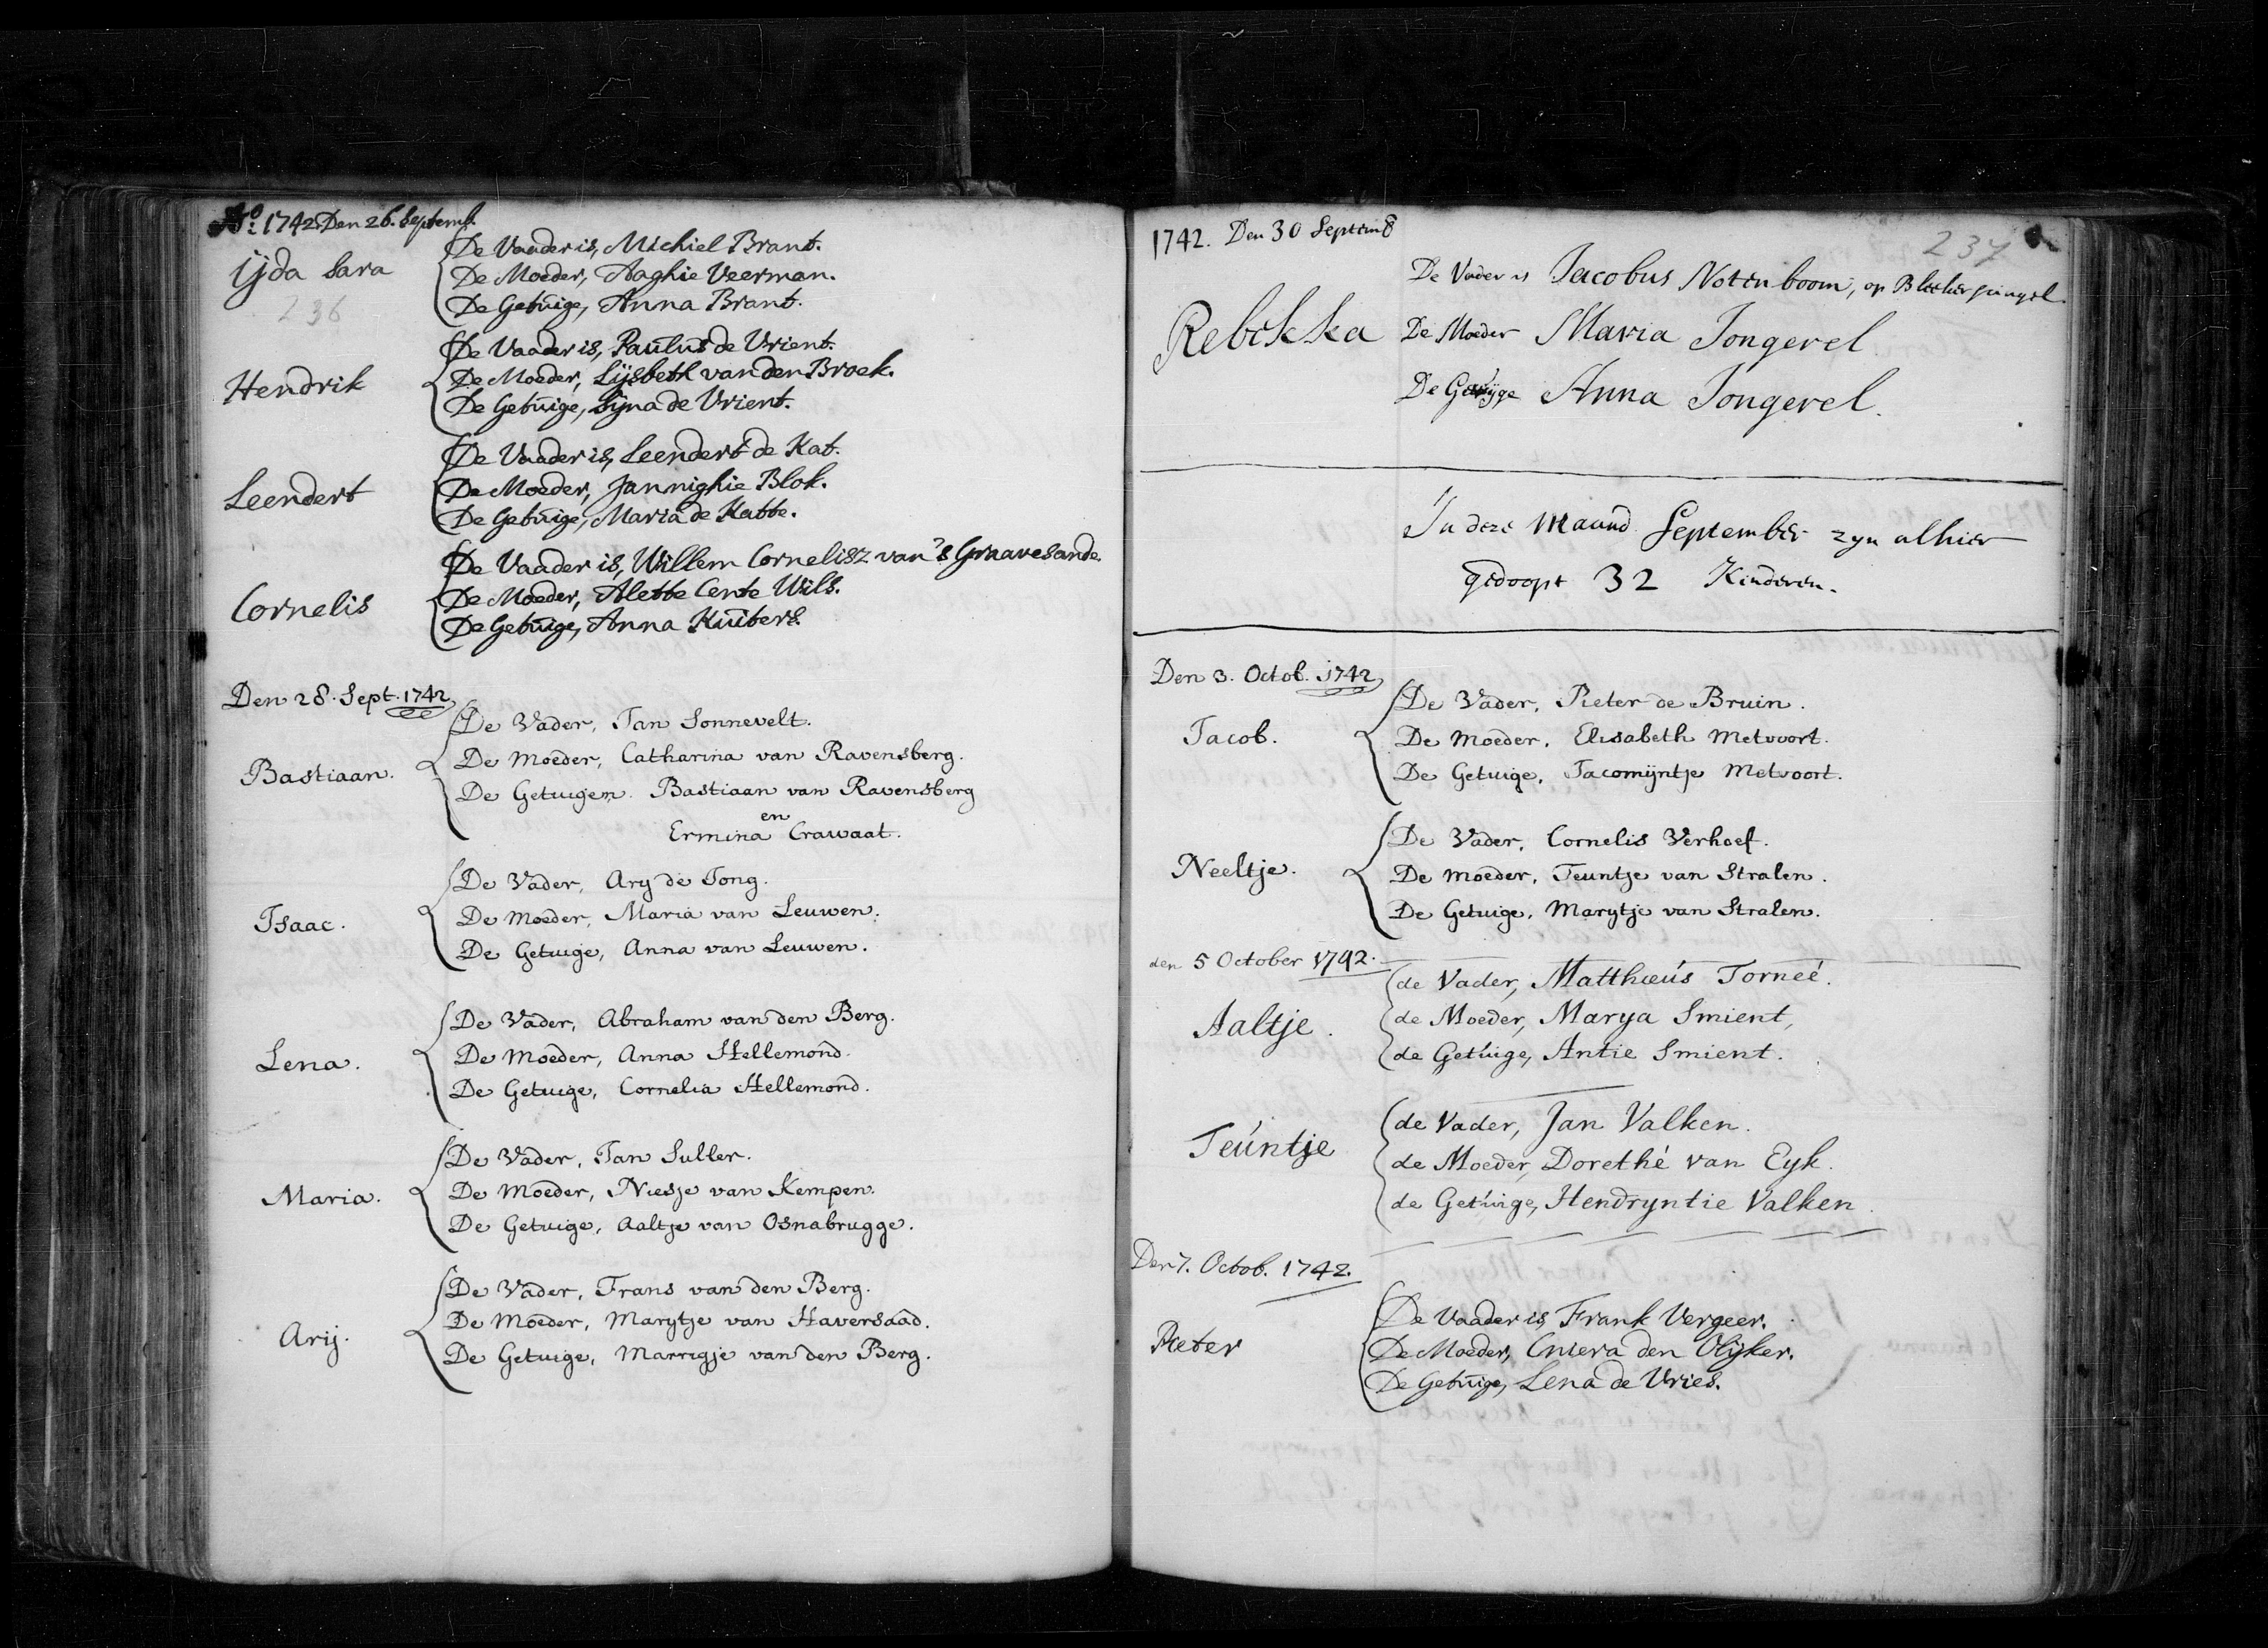 Aº: 1742 Den 26. Septemb.
Ijda Sara
De Vaader is, Michiel Brant.
De Moeder, Aaghie Veerman.
De Getuige, Anna Brant.
236
Hendrik
De Vaader is, Paulus de Vrient.
De Moeder, Lijsbeth van den Broek.
De Getuige, Sijna de Vrient.
Leendert
De Vaader is, Leendert de Kat.
De Moeder, Jannighie Blok.
De Getuige, Maria de Katte.
Cornelis
De Vaader is, Willem Cornelisz van 's Graavesande.
De Moeder, Alette Cente Wils.
De Getuige, Anna Kuiters.
Den 28. Sept. 1742
Bastiaan.
De Vader, Jan Sonnevelt.
De Moeder, Catharina van Ravensberg.
De Getuigen. Bastiaan van Ravensberg
en
Ermina Crawaat.
Isaac.
De Vader, Ary de Jong.
De Moeder, Maria van Leuwen.
De Getuige, Anna van Leuwen.
Lena.
De Vader, Abraham van den Berg.
De Moeder, Anna Hellemond.
De Getuige, Cornelia Hellemond.
Maria.
De Vader, Jan Suller.
De Moeder, Niesje van Kempen.
De Getuige, Aaltje van Osnabrugge.
Arij.
De Vader, Frans van den Berg.
De Moeder, Marytje van Haversaad.
De Getuige, Marrigje van den Berg.
1742. Den 30 Septemb
237
Rebekka
De Vader is Jacobus Notenboom, op Bleekersingel.
De Moeder Maria Jongerel
De Getuyge Anna Jongerel.
In deze Maand September zyn alhier
gedoopt 32 Kinderen.
Den 3. Octob. 1742
Jacob.
De Vader, Pieter de Bruin.
De Moeder, Elisabeth Metvoort.
De Getuige, Jacomijntje Metvoort.
Neeltje.
De Vader, Cornelis Verhoef.
De Moeder, Teuntje van Stralen.
De Getuige, Marytje van Stralen.
den 5 October 1742.
Aaltje.
de Vader, Matthæus Torneé.
de Moeder, Marya Smient,
de Getuige, Antie Smient.
Teuntje
de Vader, Jan Valken.
de Moeder, Dorethé van Eyk.
de Getuige, Hendryntie Valken.
Den 7. Octob. 1742.
Pieter
De Vaader is, Frank Vergeer.
De Moeder, Cniera den Olijker.
De Getuige, Lena de Vries.